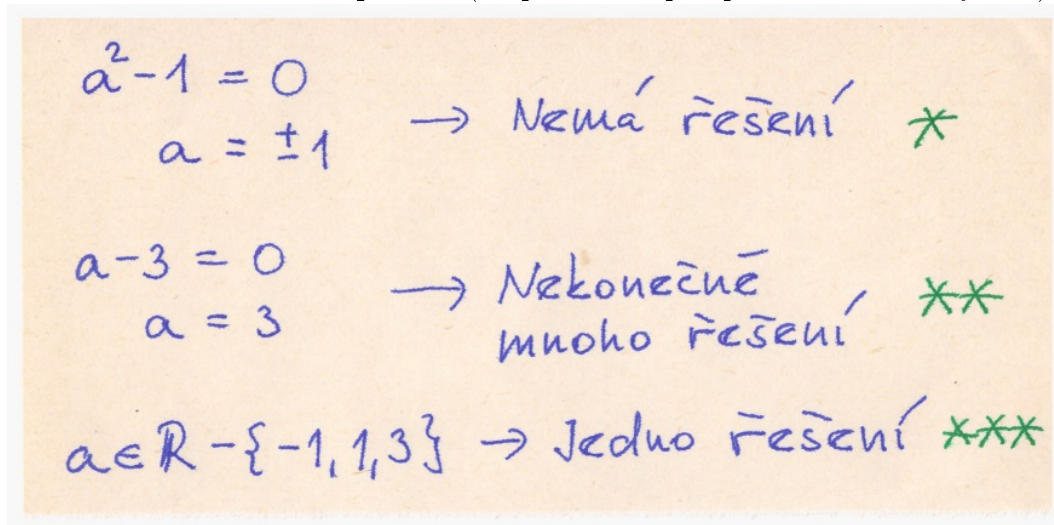 a² - 1 = 0
a = ±1 → Nemá řešení *
a - 3 = 0
a = 3 → Nekonečně
mnoho řešení **
a ∈ ℝ - {-1, 1, 3} → Jedno řešení ***